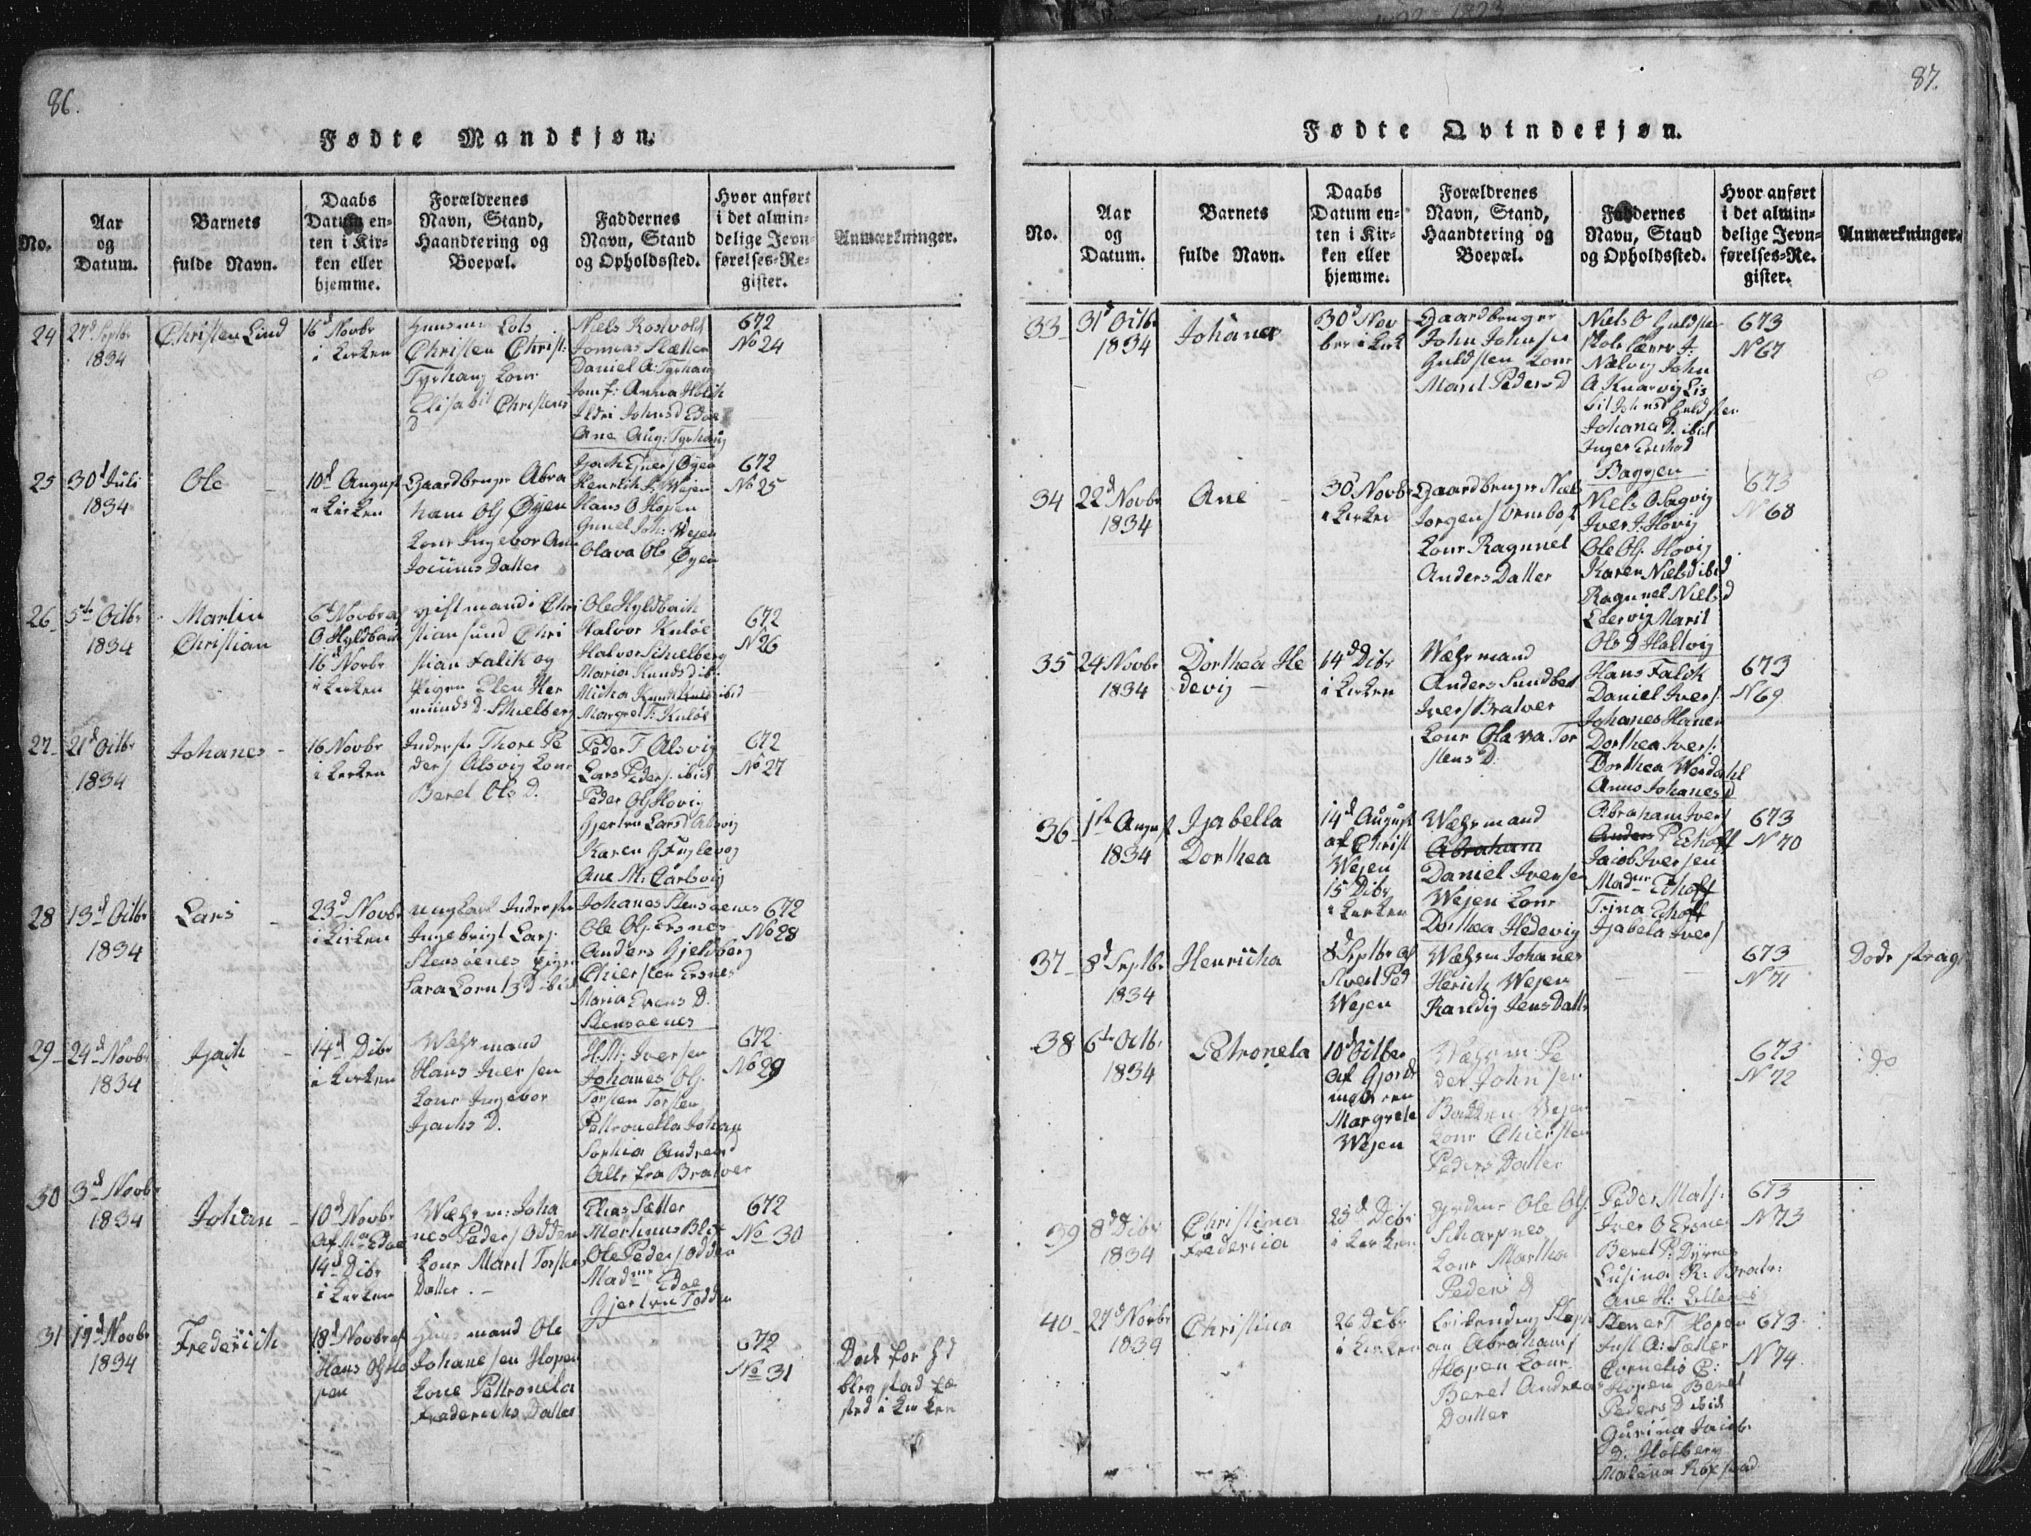 86.
Fødte Mandkjøn.
No.
Aar
og
Datum.
Barnets
fulde Navn.
Daabs
Datum en-
ten i Kir-
ken eller
hjemme.
Forældrenes
Navn, Stand,
Haandtering og
Boepæl.
Faddernes
Navn, Stand
og Opholdssted.
Hvor anført
i det almin-
delige Jevn-
førelses-Re-
gister.
Anmærkninger.
24
27d Septbr
1834
Christen Lind
16d Novbr
i Kirken
Christen Christ:
Tyrhaug Kone
Elisabet Christens
D
Niels Rosvold
Jonnas Sletter
Daniel A: Tyrhaug
Jomf: Anna Holck
Ildri Johnsd Edøe
Ane Aug: Tyrhaug
672
No 24
25
30d Juli
1834
Ole
10d August
i Kirken
Gaardbruger Abra
ham Ols Øyen
Kone Ingebor Ane
Henrich Wejen
Hans O Hopen
Gunel Joh: Wejen
Olava Ols Øyen
672
No 25
26
5te Octbr
1834
Martin
Christian
6d Novbr af
O Hyldbach
16d Novbr
i Kirken
gift mand i Chri
stiansund Chri
stian Falik og
Pigen Elen Her
munds D. Skielberg
Ole Hyldbach
Halvor Knløe
Halvor Schielberg
Maria Knudsd ib:
Margret F: Knløe
672
No 26
27
21d Octbr
1834
Johanes
16 Novbr
i Kirken
Inderst Thore Pe
ders Alsvig Kone
Beret Ols D.
Peder T Alsvig
Lars Peders. ibid
Peder Ols Hovig
Gjertru Larsd Alsvig
Karen G Fuglevog
Ane M: Carlsvig
672
No 27
28
13d Octbr
1834
Lars
23d Novbr
i Kirken
ungkarl Inderst
Ingebrigt Lars.
Stensøenes Pigen
Sara Corn
Johanes Stensøenes
Ole Ols. Ersnes
Anders Gjeldberg
Chiersten Ersnes
Maria Evens D.
Stensøenes
672
No 28
29
24d Novbr
1834
Isach
14d Dcbr
i Kirken
Wæhrmand
Hans Iversen
Kone Ingebor
Isachs D.
H. M: Iversen
Johanes Ols.
Torsten Torsten
Pettronella Johan
Sophia Andreasd
Alle fra Bratvær
672
No 29
30
3d Novbr
1834
Johan
10d Novbr
af Mr Edøe
14d Dcbr
i Kirken
Wæhrm: Joha
nes Peders Odden
Kone Marit Torstens
Datter.
Elias Sætter
Martinus Blix
Ole Peders Odden
Madme Edøe
Gjertru T odden
672
No 30
31
19d Novbr
1834
Frederich
18d Novbr af
Hans Ols Ho
pen
Huusmand Ole
Johanesen Hopen
Kone Pettronela
Frederichs Datter
672
No 31
Døde før Sd
blev stad fæ
sted i Kirken
87.
Fødte Qvindekjøn.
No.
Aar
og
Datum.
Barnets
fulde Navn.
Daabs
Datum en-
ten i Kir-
ken eller
hjemme.
Forældrenes
Navn, Stand,
Haandtering og
Boepæl.
Faddernes
Navn, Stand
og Opholdssted.
Hvor anført
i det almin-
delige Jevn-
førelses-Re-
gister.
Anmærkninger.
33
31d Octbr
1834
Johana
30d Nov
ber i Kirk
Gaardbruger
John Johnsen
Guldsten Kone
Marit Peders D
Niels O Guldsten
Skolelærer J:
Nælvig John
A Knarvig Lis
Johana D. ibid
Baggen
673
No 67
34
22d Novbr
1834
Ane
30d Novbr
i Kirken
Gaardbruger Niels
Jorgens Ormbost
Kone Ragnnel
Anders Datter
Niels O Sagvig
Iver J. Hovig
Ole Ols. Hovig
Karen Nielsd ibid
Ragnnel Niels d
Marit
Ols D Haltvig
673
No 68
35
24 Novbr
1834
Dorthea He
devig
14d Dcbr
i Kirken
Wæhrmand
Anders Sundbed
Ivers Bratver
Kone Olava Tor
stens D.
Hans Falck
Daniel Ivers.
Dorthea Ivers:
Dorthea Werdahl
Anns Johanesd
673
No 69
36
1ste August
1834
Isabella
Dorthea
14d August
af Christ
Wejen
15 Dcbr
i Kirken
Wæhrmand
Abraham
Daniel Iversen
Wejen Kone
Dorthea Hedevig
Abraham Ivers
Anders P Echoff
Jacob Iversen
Madme Echoff
Trina Echoff
Isabela Ivers
673
No 70
37
8d Septbr
1834
Henricha
8d Septbr af
Sivert Ped
Wejen
Wæhrm Johanes
Herich Wejen
Randig Jens Datter
673
No 71
Døde strax
38
6te Octbr
1834
Petronela
10d Octber
af Gjord
moderen
Margrete
Wejen
Wæhrm: Pe
der Johnsen
Bakken Wejen
Kone Chiersten
Peders Datter
673
No 72
do
39
8d Dcbr
1834
Christina
Fredericia
25d Dcbr
i Kirken
Ole Ols.
Scharpnes
Kone Martha
Peders D
Peder Mats.
Iver O Ersnes
Beret P: Dyrnes
Lusina R: Bratv:
Ane H:
673
No 73
40
27d Novbr
1839
Christina
26 Dcbr
i Kirken
an Abrahams
Hopen Kone
Beret Andreas
Datter
Stener T Hopen
Just A: Sætter
Cornelis C:
Hopen Beret
Peders D ibid
Gurina Jacobs
D. Holberg
673
No 74.